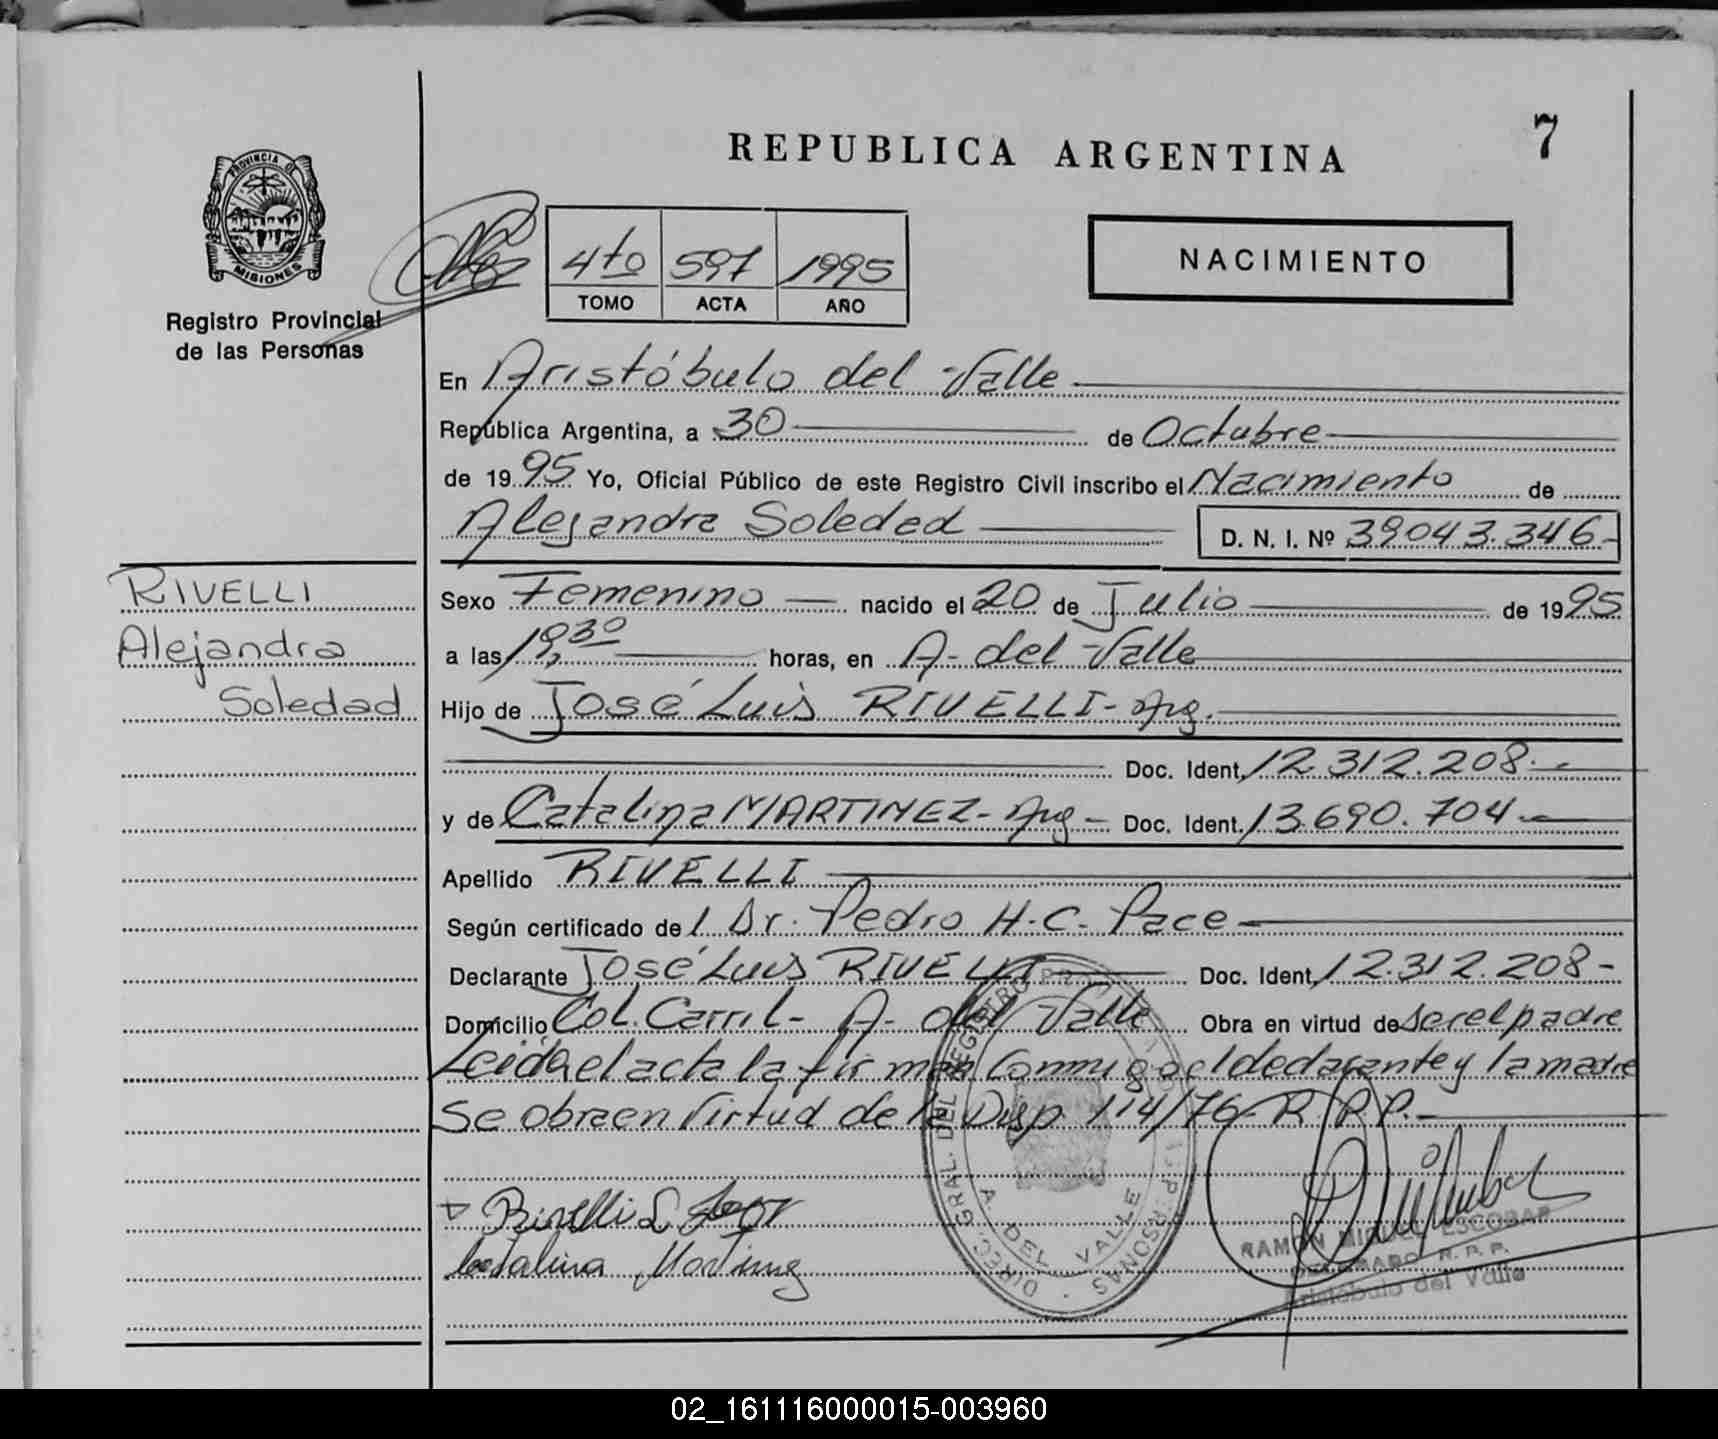 REPUBLICA ARGENTINA
7
PROVINCIA DE
MISIONES
Registro Provincial
de las Personas
4to 597 1995
TOMO ACTA AÑO
NACIMIENTO
En Aristóbulo del Valle
República Argentina, a 30 de Octubre
de 1995 Yo, Oficial Público de este Registro Civil inscribo el Nacimiento de
Alejandra Soledad D. N. I. Nº 39043.346-
RIVELLI
Alejandra
Soledad
Sexo Femenino nacido el 20 de Julio de 1995
a las 19,30 horas, en A. del Valle
Hijo de José Luis RIVELLI- Arg.
Doc. Ident. 12.312.208.-
y de Catalina MARTINEZ- Arg - Doc. Ident. 13.690.704.-
Apellido RIVELLI
Según certificado del Dr. Pedro H.C. Pace
Declarante José Luis RIVELLI Doc. Ident. 12.312.208-
Domicilio Col. Carril- A. del Valle Obra en virtud de ser el padre
Leida el acta la firman conmigo el declarante y la madre
Se obra en Virtud de la Disp. 114/76- R.P.P.-
Rivelli
Catalina Martinez
DIREC. GRAL. DEL REGISTRO PROVINCIAL DE LAS PERSONAS
A. DEL VALLE
RAMON MIGUEL ESCOBAR
R. P. P.
Aristóbulo del Valle
02_161116000015-003960